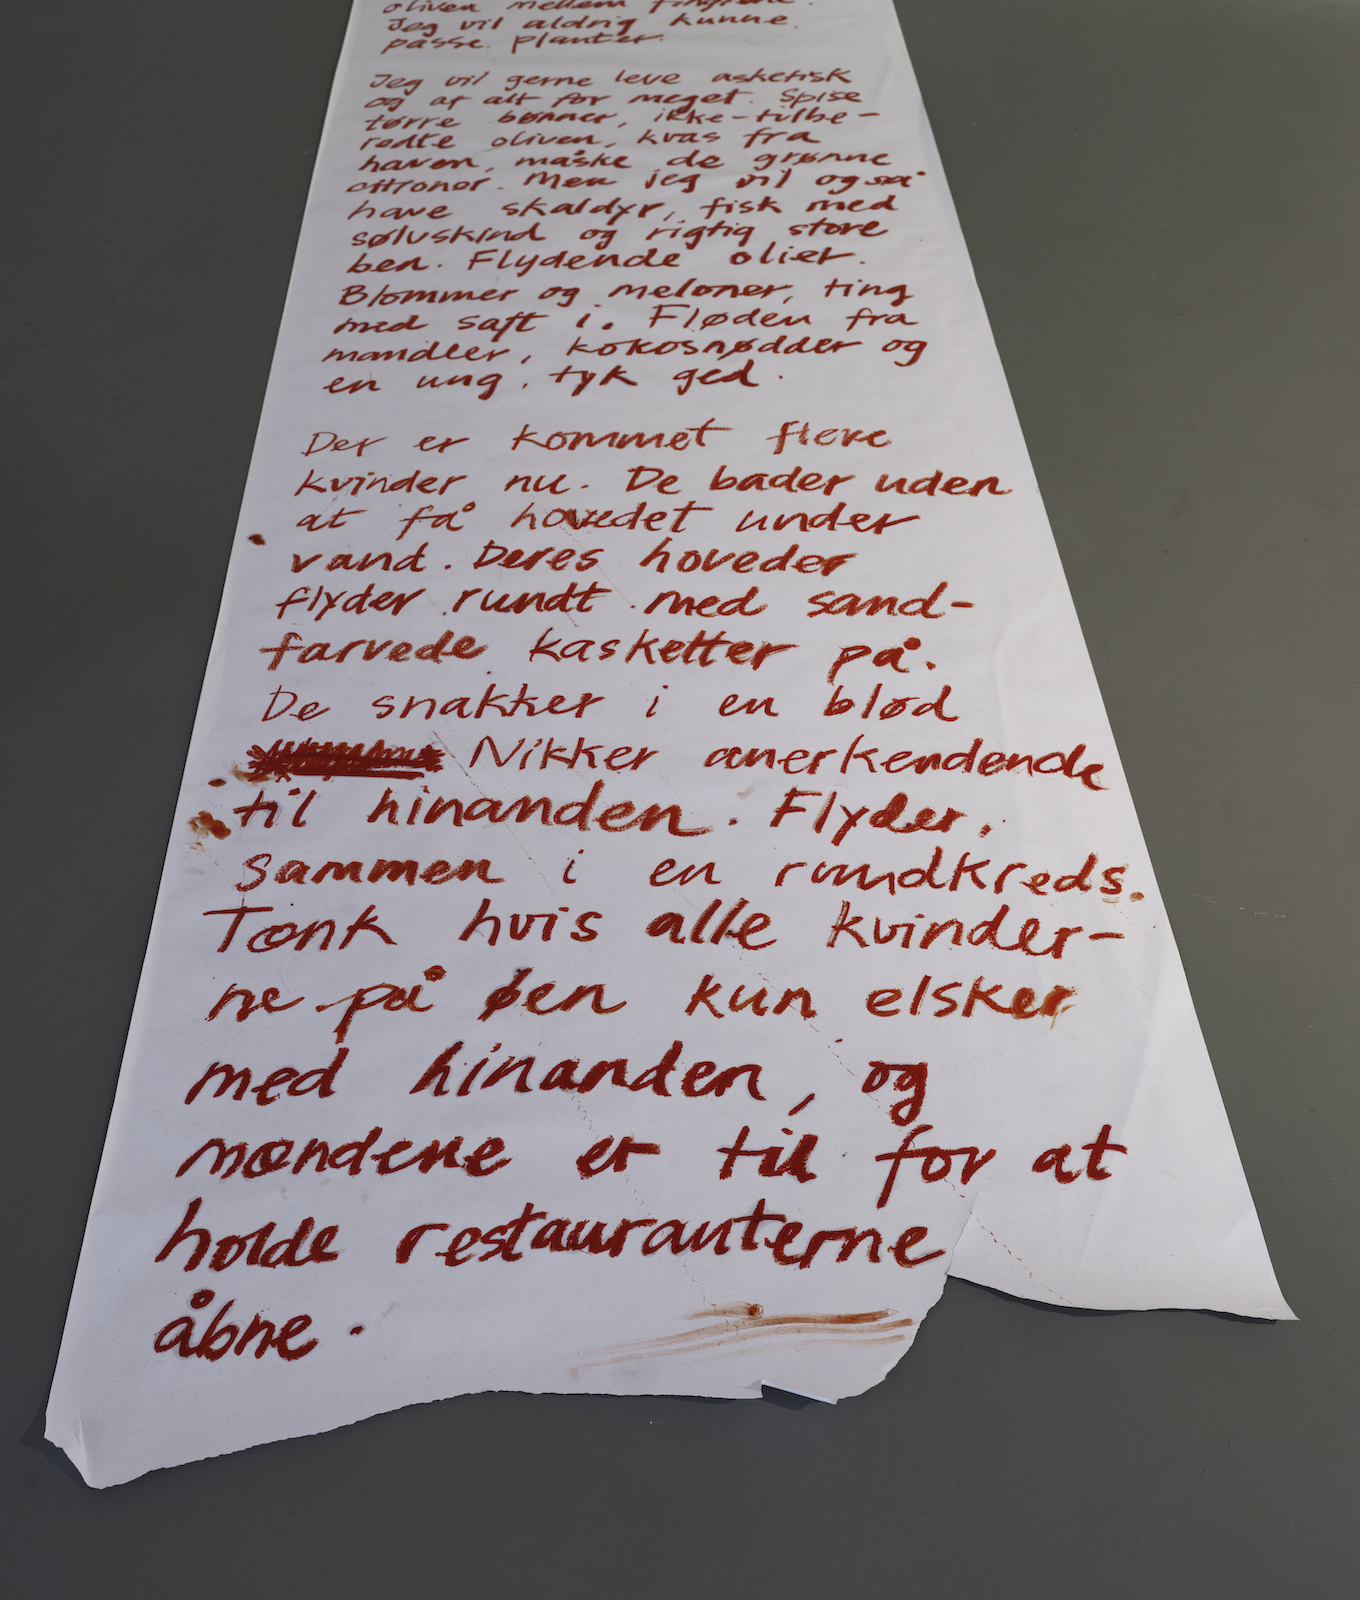 oliven mellem fingrene.
Jeg vil aldrig kunne
passe planter.
Jeg vil gerne leve asketisk
og af alt for meget. Spise
tørre bønner, ikke-tilbe-
redte oliven, kvas fra
haven, måske de grønne
citroner. Men jeg vil også
have skaldyr, fisk med
sølvskind og rigtig store
ben. Flydende olier.
Blommer og meloner, ting
med saft i. Fløden fra
mandler, kokosnødder og
en ung, tyk ged.
Der er kommet flere
kvinder nu. De bader uden
at få hovedet under
vand. Deres hoveder
flyder rundt med sand-
farvede kasketter på.
De snakker i en blød
Nikker anerkendende
til hinanden. Flyder.
sammen i en rundkreds.
Tænk hvis alle kvinder-
ne på øen kun elsker
med hinanden, og
mændene er til for at
holde restauranterne
åbne.